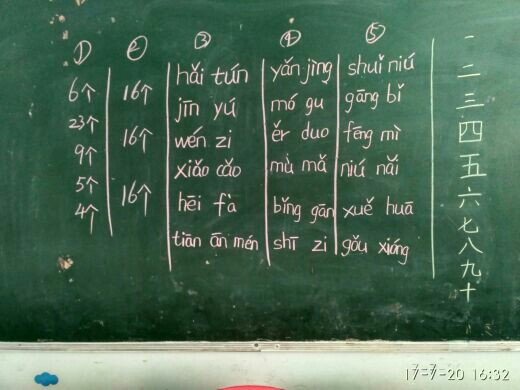 ① ② ③ ④ ⑤
6个 16个 hǎi tún yǎn jìng shuǐ niú
23个 jīn yú mó gu gāng bǐ
9个 16个 wén zi ěr duo fēng mì
5个 xiǎo cǎo mù mǎ niú nǎi
4个 16个 hēi fà bǐng gān xuě huā
tiān ān mén shī zi gǒu xióng
一
二
三
四
五
六
七
八
九
十
17-7-20 16:32